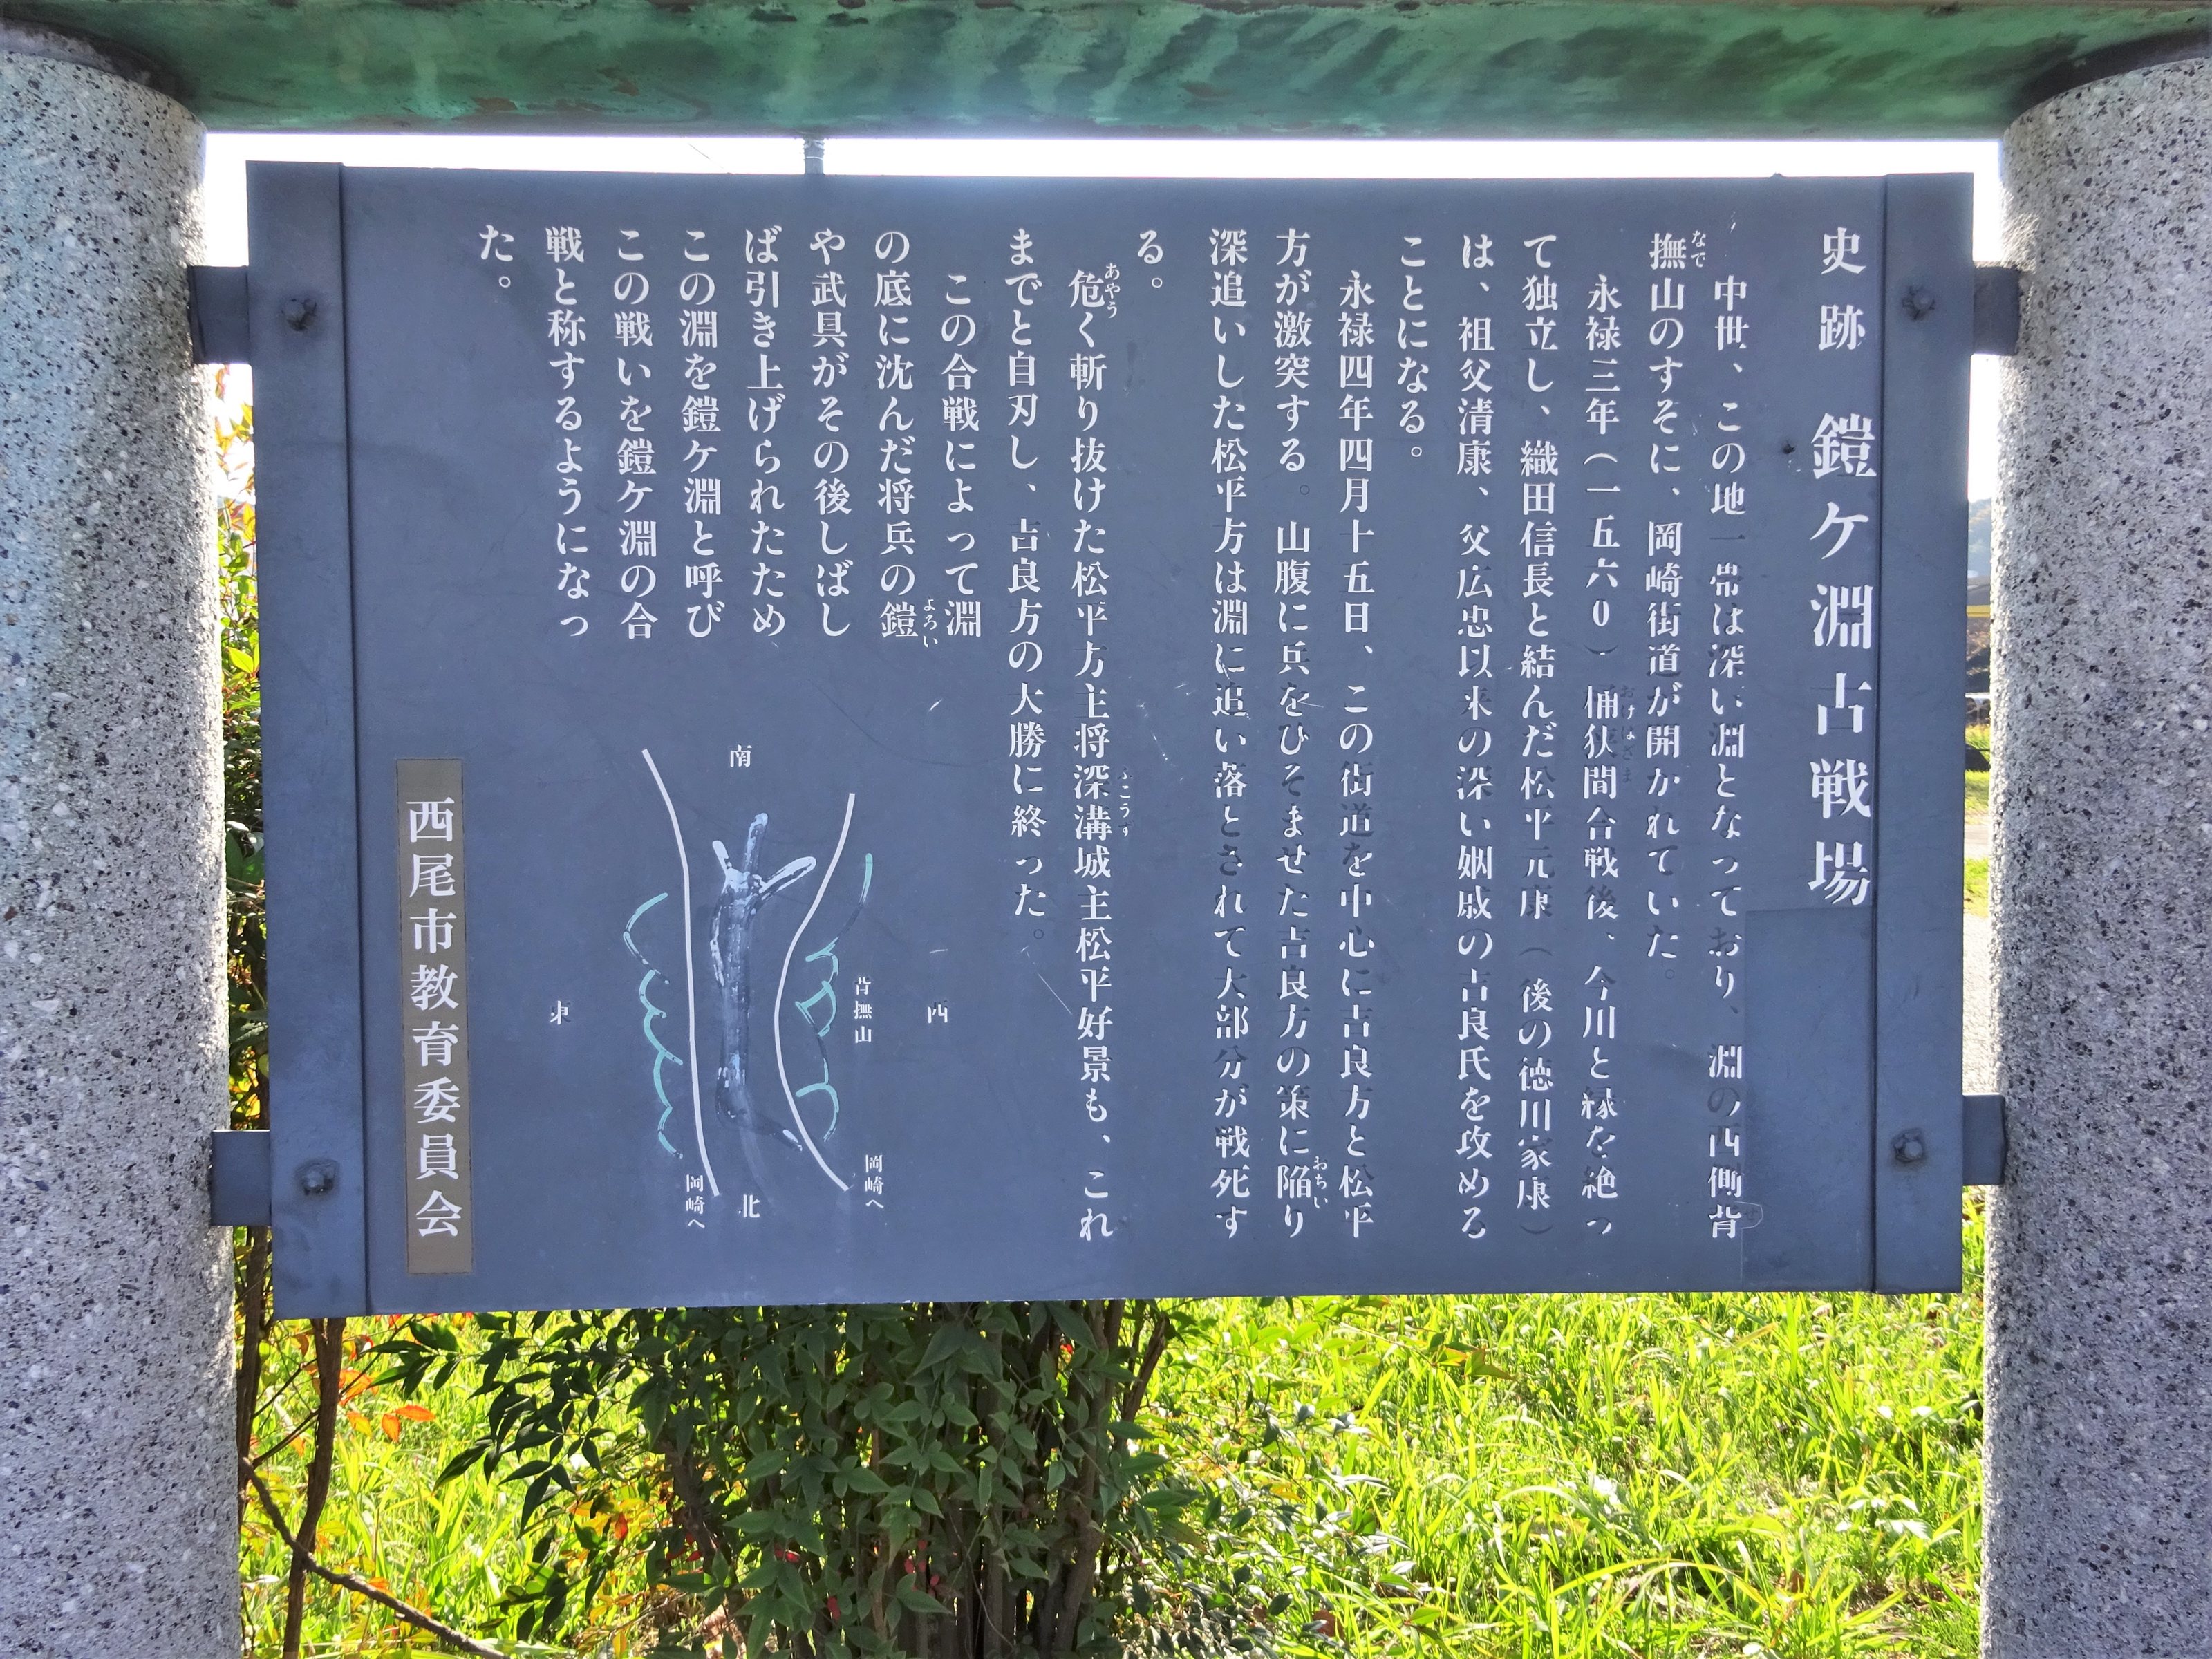 史跡 鎧ケ淵古戦場
中世、この地一帯は深い淵となっており、淵の西側背
撫山のすそに、岡崎街道が開かれていた。
なで
永禄三年(一五六0)桶狭間合戦後、今川と縁を絶っ
おけはざま
て独立し、織田信長と結んだ松平元康(後の徳川家康)
は、祖父清康、父広忠以来の深い姻戚の吉良氏を攻める
ことになる。
永禄四年四月十五日、この街道を中心に吉良方と松平
方が激突する。山腹に兵をひそませた吉良方の策に陥り
おちい
深追いした松平方は淵に追い落とされて大部分が戦死す
る。
危く斬り抜けた松平方主将深溝城主松平好景も、これ
あやう
こうず
までと自刃し、吉良方の大勝に終った。
この合戦によって淵
の底に沈んだ将兵の鎧
よろい
や武具がその後しばし
ば引き上げられたため
この淵を鎧ケ淵と呼び
この戦いを鎧ケ淵の合
戦と称するようになっ
た。
南
西
背撫山
東
岡崎へ
北
岡崎へ
西尾市教育委員会